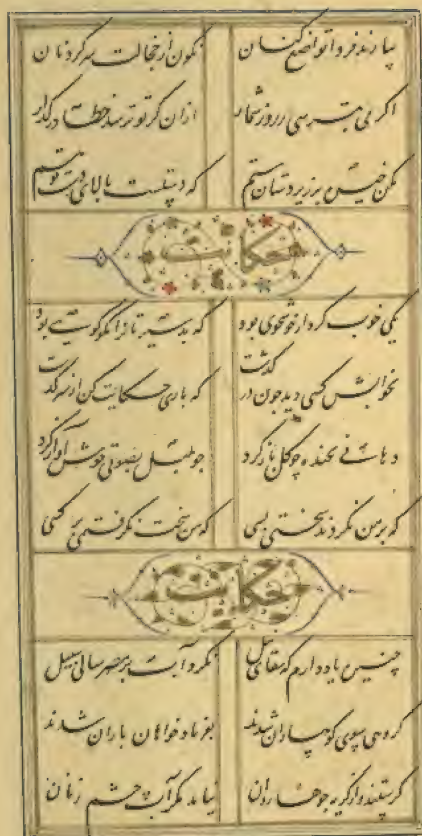 بیارند فردا تواضع کنان نگون از خجالت سر گردنان
اگر می بترسی ز روز شمار ازان کز تو ترسد خطا در گذار
مکن خیره بر زیردستان ستم که دستیست بالای دست تو هم
حکایت
یکی خوب کردار خوشخوی بود که بدسیرتانرا نکوگوی بود
بخوابش کسی دید چون در گذشت که باری حکایت کن از سرگذشت
دهانی بخنده چو گل باز کرد چو بلبل بصوتی خوش آواز کرد
که بر من نکردند سختی بسی که من سخت نگرفتمی بر کسی
حکایت
چنین یاد دارم که سقای نیل نکرد آب بر مصر سالی سبیل
گروهی سوی کوهساران شدند بفریاد خواهان باران شدند
گرستند و از گریه جوها روان نیامد مگر آب چشم زنان